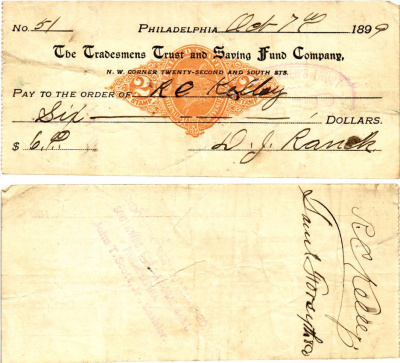 No. 51 Philadelphia, Oct 7th 1899
The Tradesmens Trust and Saving Fund Company,
N. W. CORNER TWENTY-SECOND AND SOUTH STS.
PAY TO THE ORDER OF R C Kelley
Six DOLLARS.
$ 6.00 D. J. Ranck
2 STAMP 2
R. C. Kelley
Saml Forsythe